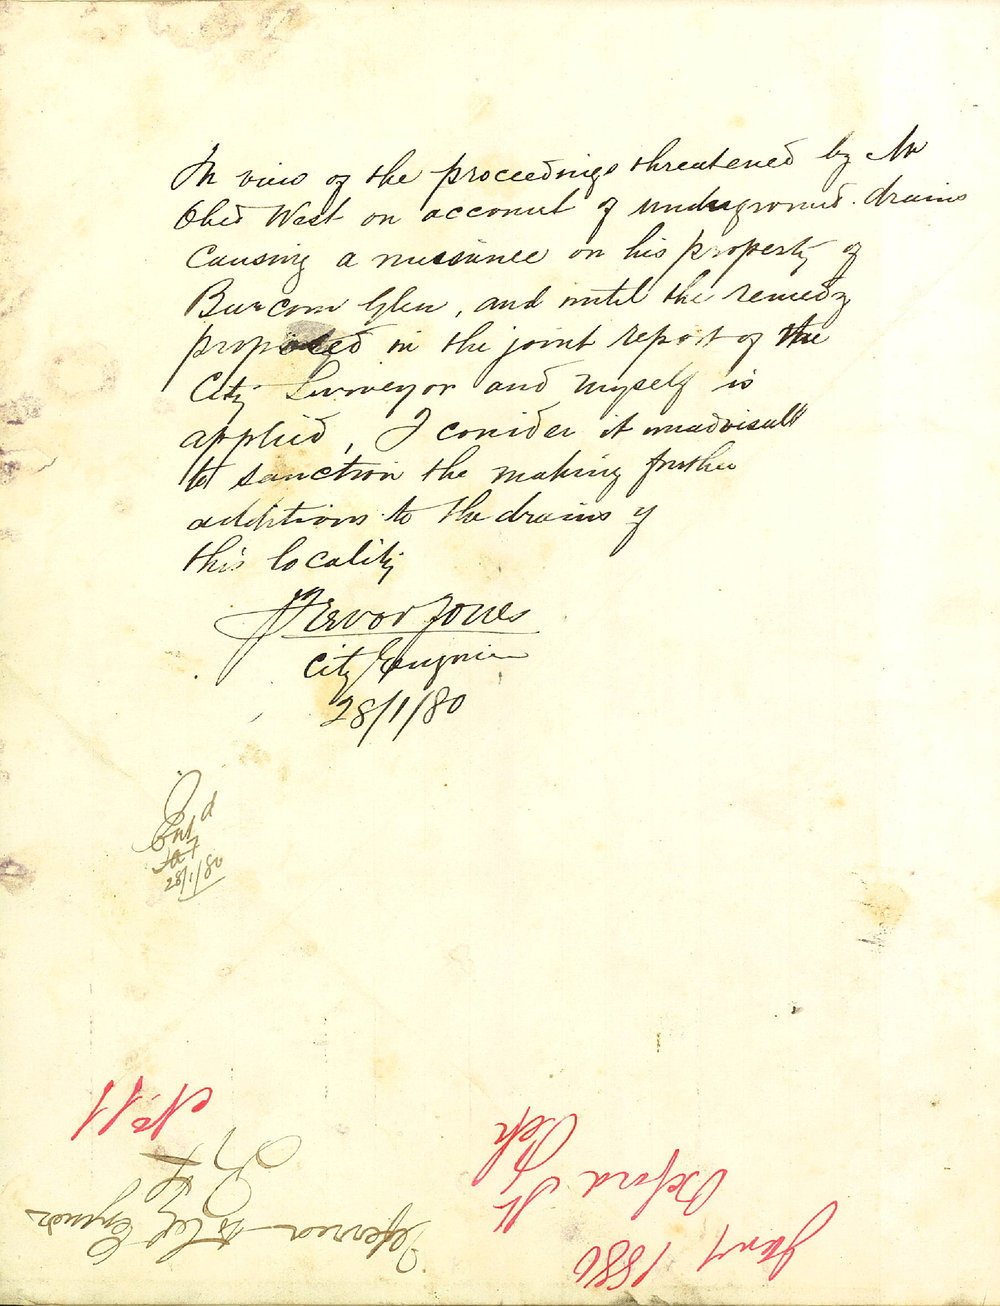 In view of the proceedings threatened by Mr
Obed West on account of underground drains
causing a nuisance on his property of
Barcom Glen, and until the remedy
proposed in the joint report of the
City Surveyor and myself is
applied, I consider it unadvisable
to sanction the making further
additions to the drains of
this locality
Trevor Jones
City Engineer
28/1/80
28/1/80
No 11
Referred to City Engineer
Oxford St
1880